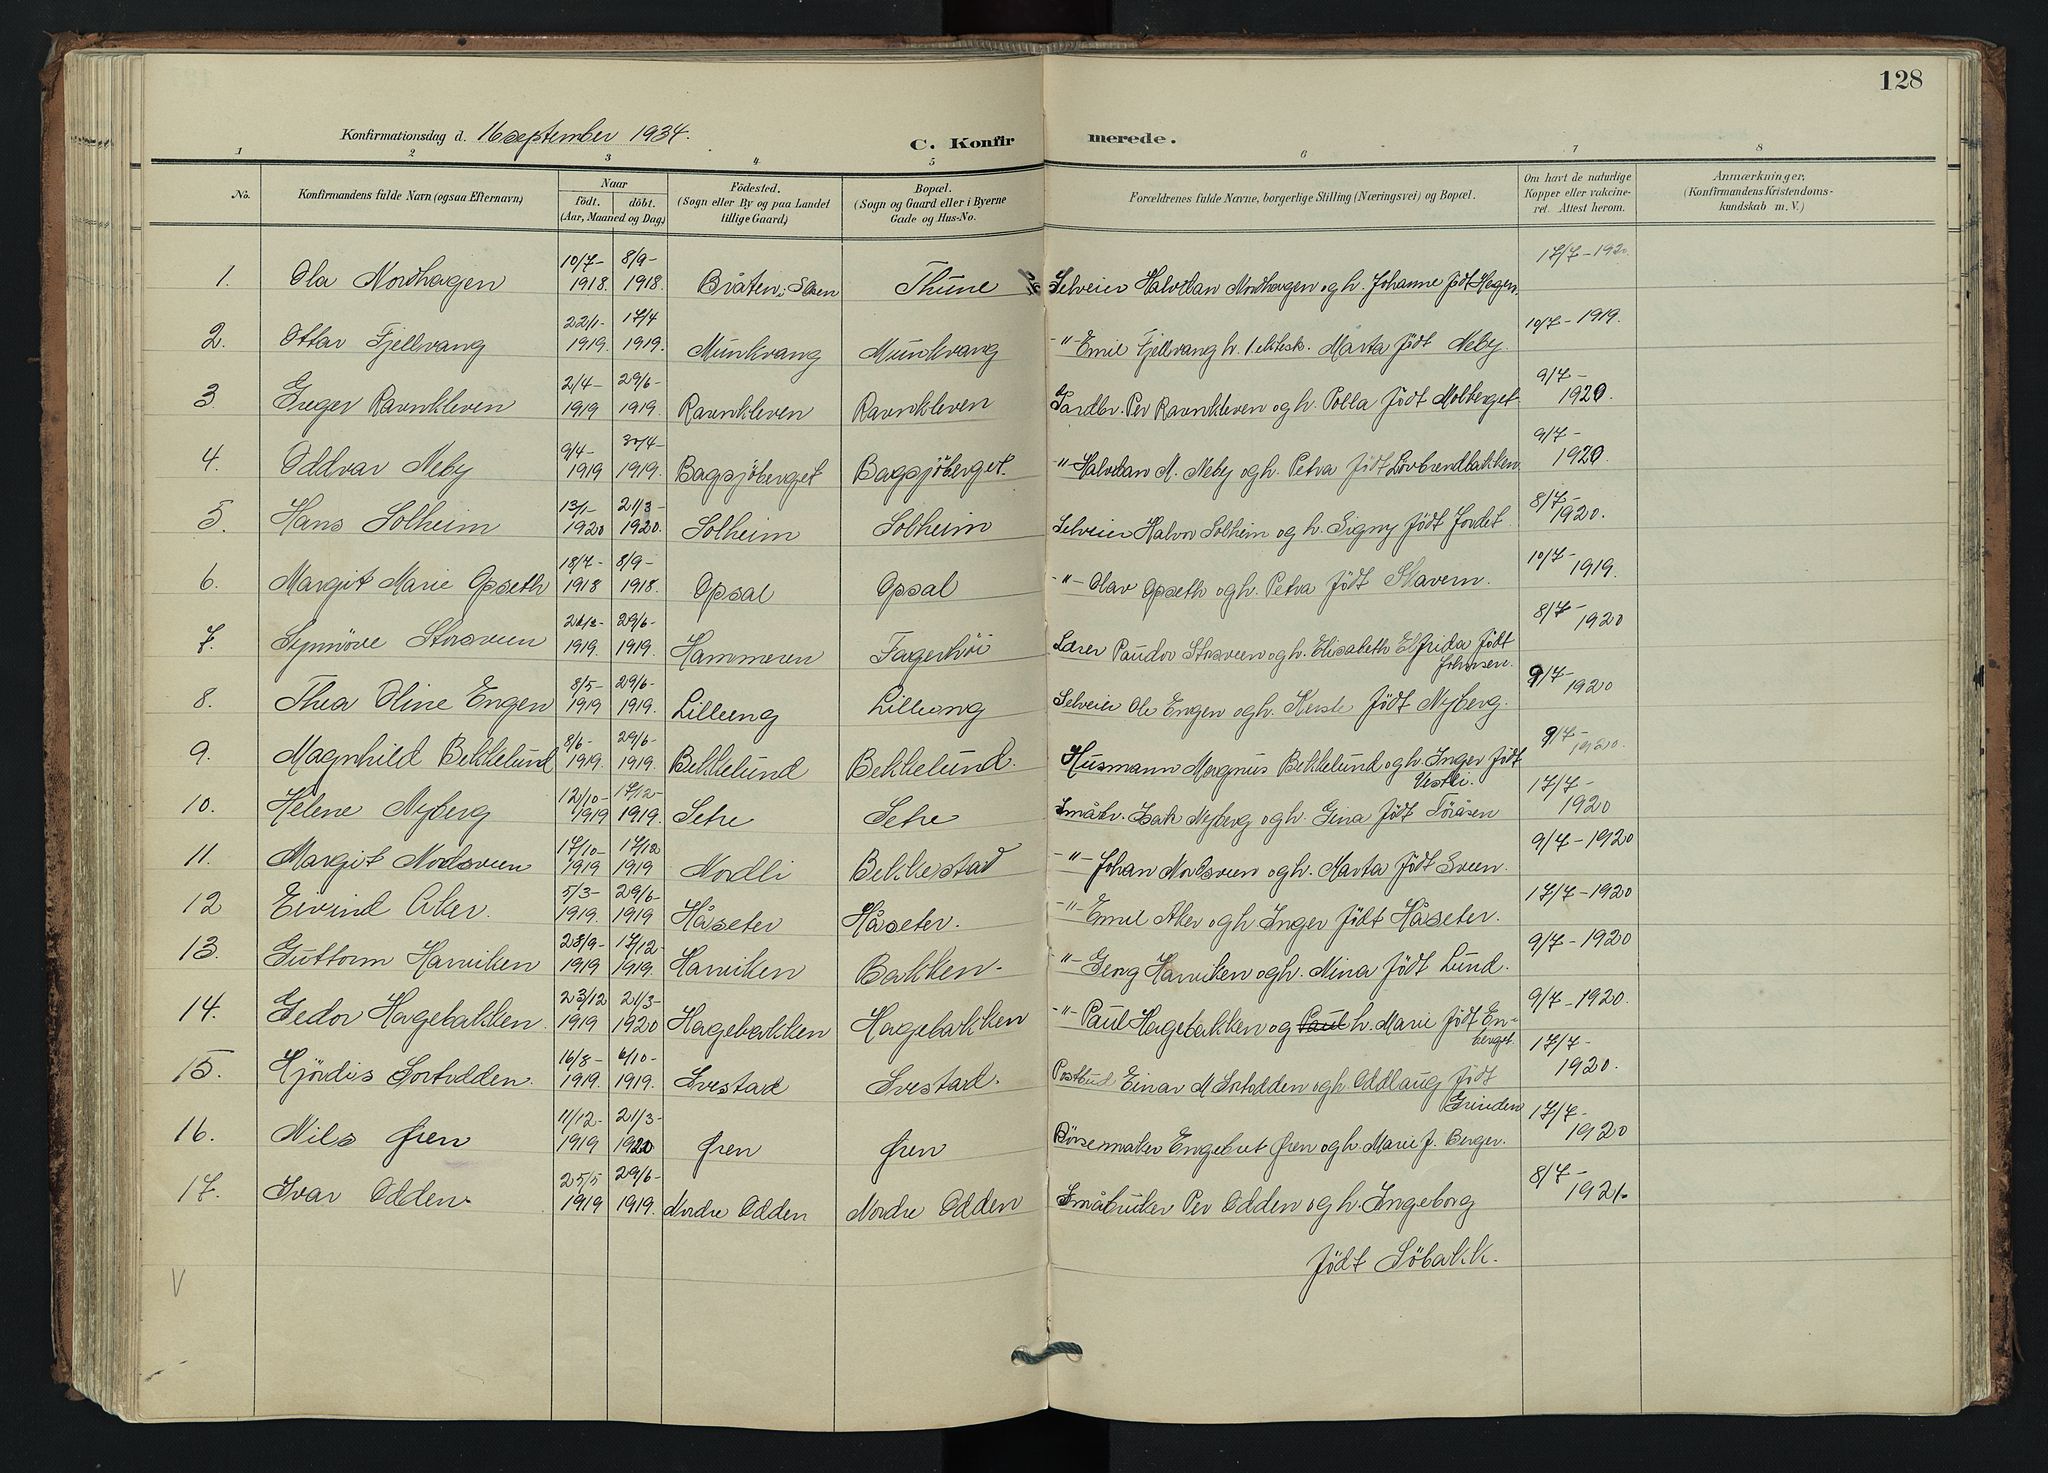 128
Konfirmationsdag d. 16 september 1934.
C. Konfirmerede.
1 2 3 4 5 6 7 8
No.
Konfirmandens fulde Navn (ogsaa Efternavn).
Naar
födt. döbt.
(Aar, Maaned og Dag)
Födested.
(Sogn eller By og paa Landet
tillige Gaard)
Bopæl.
(Sogn og Gaard eller i Byerne
Gade og Hus-No.
Forældrenes fulde Navne, borgerlige Stilling (Næringsvei) og Bopæl.
Om havt de naturlige
Kopper eller vakcine-
ret. Attest herom.
Anmærkninger,
(Konfirmandens Kristendoms-
kundskab m. V.)
1. Ola Nordhagen 10/7-1918. 8/9-1918. Bråten i Såen Thune Selveier Halvdan Nordhagen og h. Johanne födt Hagen. 17/7-1920.
2. Ottar Fjellvang 22/1-1919. 17/4 1919. Munkvang Munkvang -"- Emil Fjellvang h. 1. ektesk. Marta födt Neby. 10/7-1919.
3 Greger Ravnkleven 2/4-1919 29/6-1919. Ravnkleven Ravnkleven Gardbr. Per Ravnkleven og h. Polla födt Molberget 9/7-1920.
4. Oddvar Neby 9/4-1919 30/4-1919. Bagsjöberget Bagsjöberget. -"- Halvdan M. Neby og h. Petra födt Lövbrendbakken. 9/7-1920.
5. Hans Solheim 13/1-1920 21/3-1920. Solheim Solheim Selveier Halvor Solheim og h. Signy födt Jordet. 8/7-1920.
6. Margit Marie Opseth 18/7-1918 8/9-1918. Opsal Opsal -"- Olav Opseth og h. Petra födt Stavern. 10/7-1919.
7. Synnöve Storsveen 1919. 29/6-1919. Hammeren Fagerhöi Lærer Storsveen og h. Elisabeth Elfrida födt 8/7-1920
Johnsen.
8. Thea Oline Engen 8/5-1919 29/6-1919. Lilleeng Lilleeng Selveier Ole Engen og h. Kerste födt Nyberg. 9/7-1920
9. Magnhild Bekkelund 8/6-1919. 29/6-1919. Bekkelund Bekkelund. Husmann Magnus Bekkelund og h. Inger födt 9/7-1920.
Vestli.
10. Helene Nyberg 12/10-1919 17/12-1919. Setre Setre Småbr. Isak Nyberg og h. Gina födt Töråsen 17/7-1920
11. Margit Nordsveen 17/10-1919 17/12 1919 Nordli Bekkestad -"- Johan Nordsveen og h. Marta födt Sveen. 9/7-1920
12 Eivind Aker. 5/3-1919. 29/6-1919 Håseter Håseter. -"- Emil Aker og h Inger födt Håseter. 17/7-1920
13. Guttorm Harviken 28/9-1919 17/12-1919. Harviken Bakken. -"- Georg Harviken og h. Nina födt Lund. 9/7-1920
14. Gedor Hagebakken 23/12 1919 21/3-1920 Hagebakken Hagebakken -"- Paul Hagebakken og Paul h. Marie födt En- 9/7-1920.
berget.
15. Hjördis Sortodden. 16/8-1919. 6/10-1919. Svestad Svestad. Postbud Einar M Sortodden og h. Oddlaug födt 17/7-1920.
Grinden
16. Nils Øren 11/12-1919 21/3-1920 Øren Øren Börsemaker Engebret Øren og h. Marie f. Berger. 17/7-1920
17. Ivar Odden. 25/5 1919 29/6-1919. Nordre Odden Nordre Odden Småbruker Per Odden og h. Ingeborg 8/7-1921.
födt Söbakk.
V